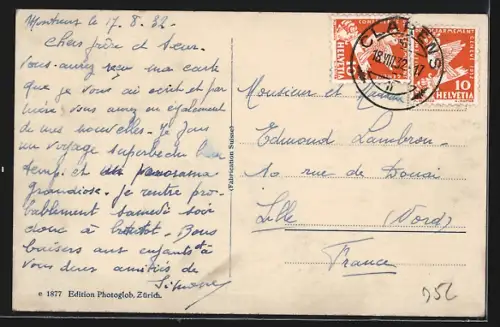 Montreux le 17.8.32
Chers frère et sœur
Vous aurez reçu ma carte
que je vous ai écrit et par
mère vous aurez eu également
de mes nouvelles. Je fais
un voyage superbe du beau
temps et un panorama
grandiose. Je rentre pro-
bablement samedi soir
donc à bientôt. Bons
baisers aux enfants & à
vous deux amitiés de
Simone
© 1877 Edition Photoglob, Zürich.
(Fabrication Suisse)
CLARENS
18.VIII.32-17
HELVETIA
10
HELVETIA
Monsieur et Madame
Edmond Lambron
10 rue de Douai
Lille (Nord)
France